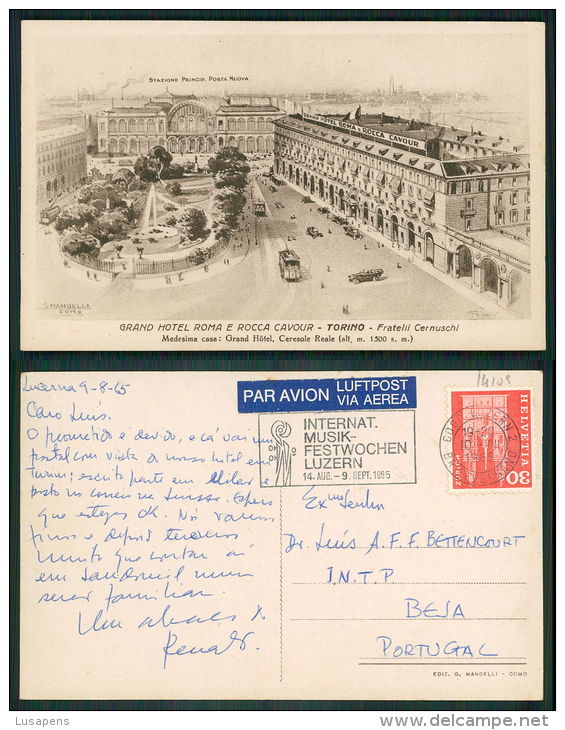 STAZIONE PRINCIP. PORTA NUOVA
GRAND HOTEL ROMA E ROCCA CAVOUR
G. MANDELLI
COMO
GRAND HOTEL ROMA E ROCCA CAVOUR - TORINO - Fratelli Cernuschi
Medesima casa: Grand Hôtel, Ceresole Reale (alt. m. 1500 s. m.)
Lucerna 9-8-65
Caro Luís.
O prometido é devido, e cá vai um
postal com vista do nosso hotel em
Turim; escrito parte em Milão e
posto no correio na Suisse. Espero
que estejas OK. Nós vamos
e depois teremos
muito que contar aí
em Sandomil num
serão familiar.
Um abraço
Renato
PAR AVION
LUFTPOST
VIA AEREA
INTERNAT.
MUSIK-
FESTWOCHEN
LUZERN
14. AUG. - 9. SEPT. 1965
HELVETIA
30
Exmo Senhor
Dr. Luís A. F. F. BETTENCOURT
I.N.T.P.
BEJA
PORTUGAL
EDIZ. G. MANDELLI - COMO
Lusapens
delcampe.net